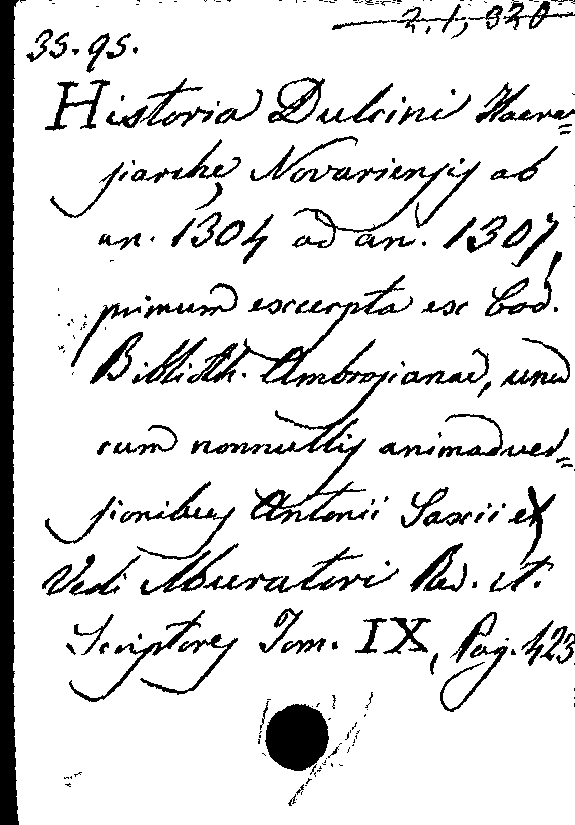 2.1, 320
35.95.
Historia Dulcini Haere=
siarche, Novariensis ab
an. 1304 ad an. 1307,
primum excerpta ex Cod.
Biblioth. Ambrosianae, una
cum nonnullis animadver=
sionibus Antonii Saxii
Vedi Muratori Rer. It.
Scriptores Tom. IX, Pag. 423